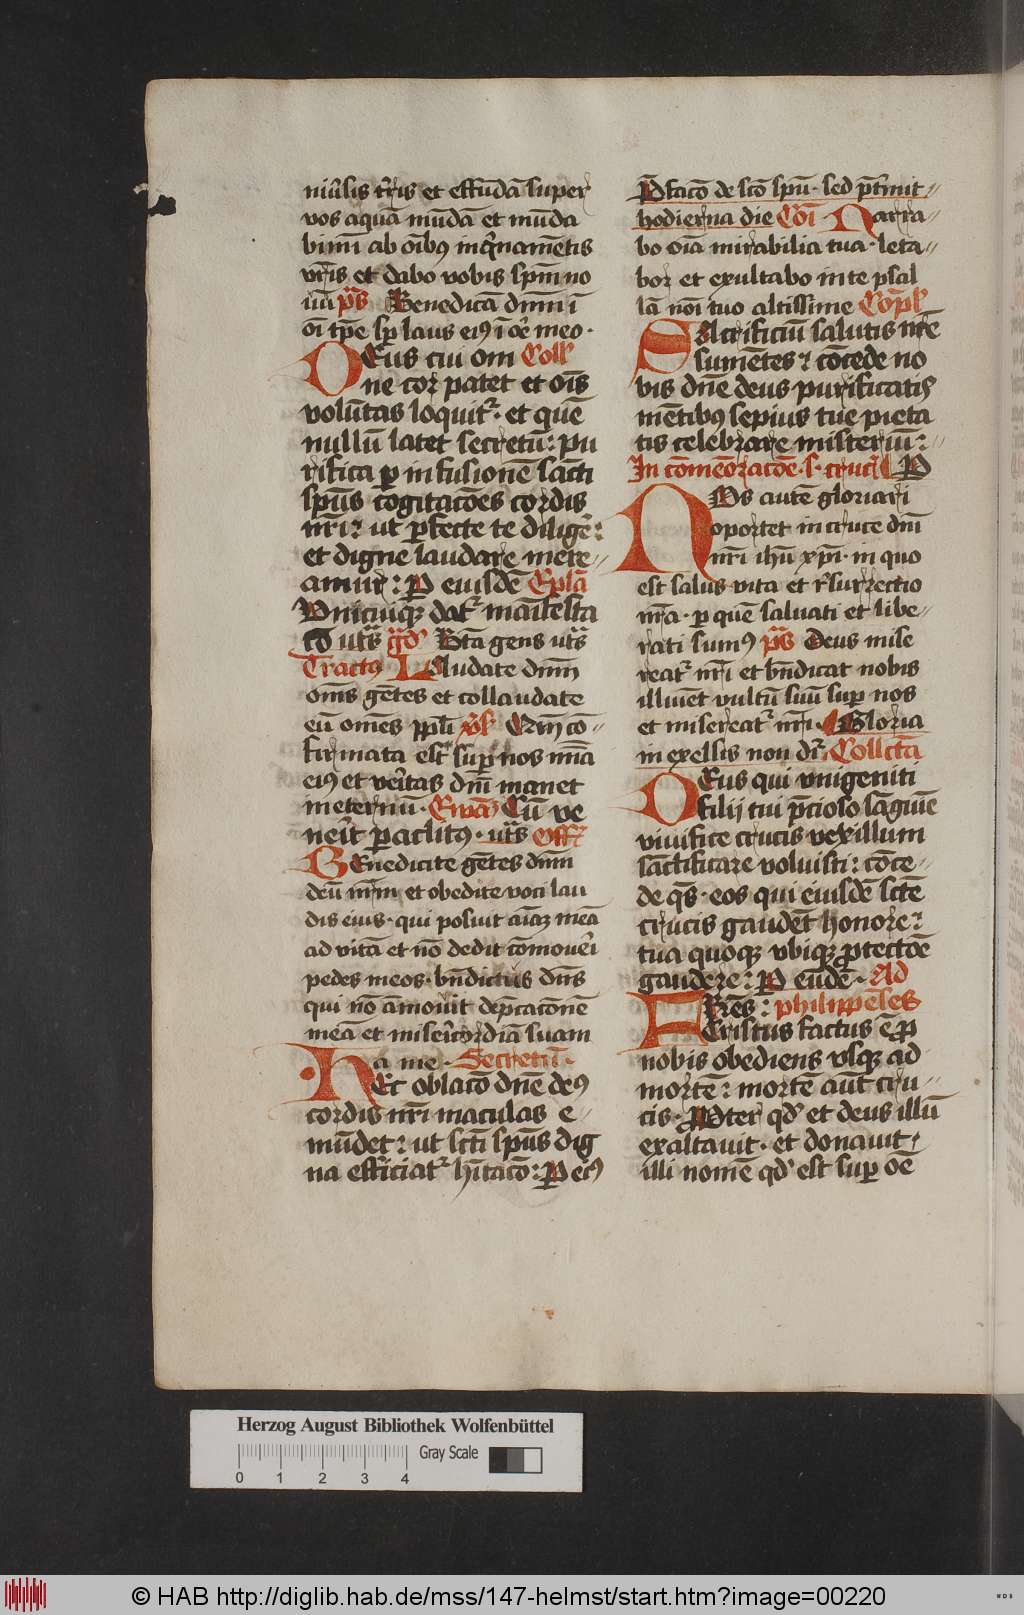 niũsis tr̃ris et effundã super
vos aquã mudã et mũda
bimĩ ab oĩbꝰ inq̃namẽtis
vr̃is et dabo vobis spm̃ no
uũ p̃s Benedicã dnm̃ ĩ
oĩ tp̃e sp̱ laus eiꝰ ĩ oẽ meo ·
DEus cui om Coll̃
ne cor patet et oĩs
volũtas loquit᷑ · et quẽ
nullũ latet secretũ : pu
rifica ꝑ infusionẽ sãcti
spũs cogitacões cordis
nr̃i : ut ꝑfecte te diligẽ :
et digne laudare mere⸗
amur : P eiusdẽ Eplã
Vnicuiqꝫ dat᷑ manifesta
cõ ut s̃ gͣd̃ Bt̃a gens ut s̃
Tractꝰ Laudate dnm̃
oms̃ gẽtes et collaudate
eũ omẽs ppl̃i v̾s̃ Qm̃ cõ⸗
firmata est sup̱ nos mĩa
eiꝰ et veĩtas dnĩ manet
ineternũ · Ewãg̃ Cũ ve
neĩt paclitꝰ · ut s̃ off̃
BEnedicite gẽtes dnm̃
deũ nr̃m et obedite voci lau
dis eius · qui posuit aĩaꝫ meã
ad vitã et nõ dedit cõmoueĩ
pedes meos · bñdictus dñs
qui nõ amouit dep̃cacõnẽ
meã et miseĩcordiã suam
a me · Secretũ ·
HEc oblacõ dñe deꝰ
cordis nr̃i maculas e⸗
mũdet : ut sctĩ spũs dig
na efficiat᷑ hĩtacõ : P eiꝰ
P̃facõ de scõ spũ · sed p̃t̃mit⸗
hodierna die Cõi Narra⸗
bo oĩa mirabilia tua · leta⸗
bor et exultabo in te psal
lã noĩ tuo altissime Cõpl̃
SAcrificiũ salutis nr̃e
sumẽtes : cõcede no
bis dñe deus purificatis
mẽtibꝰ sepius tue pieta
tis celebrare misteriũ :
In cõmẽoracõe · s · cruc̃ P
NOs autẽ gloriari
oportet in cruce dnĩ
nr̃i ihũ xpĩ · in quo
est salus vita et rsurrectio
nr̃a · ꝑ quẽ saluati et libe⸗
rati sumꝰ p̃s Deus mise
reat᷑ nr̃i et bñdicat nobis
illuiẽt vultũ suũ sup̱ nos
et misereat᷑ nr̃i · Gloria
in exelsis non dr̃ · Collctã
DEus qui vnigeniti
filij tui p̃cioso sãguiẽ
viuifice crucis vexillum
sãctificare voluisti : cõce⸗
de q̃s · eos qui eiusdẽ sctẽ
crucis gaudẽt honore :
tua quoqꝫ vbiqꝫ ꝓtectõe
gaudere : P eũdẽ · Ad
FRẽs : philippẽses
Cristus factus ẽ ꝓ
nobis obediens vsqꝫ ad
mortẽ : mortẽ aũt cru⸗
cis · Pꝓter qd̃ et deus illũ
exaltauit · et donauit ·
illi nomẽ qd̃ est sup̱ oẽ
Herzog August Bibliothek Wolfenbüttel
Gray Scale
0 1 2 3 4
© HAB http://diglib.hab.de/mss/147-helmst/start.htm?image=00220